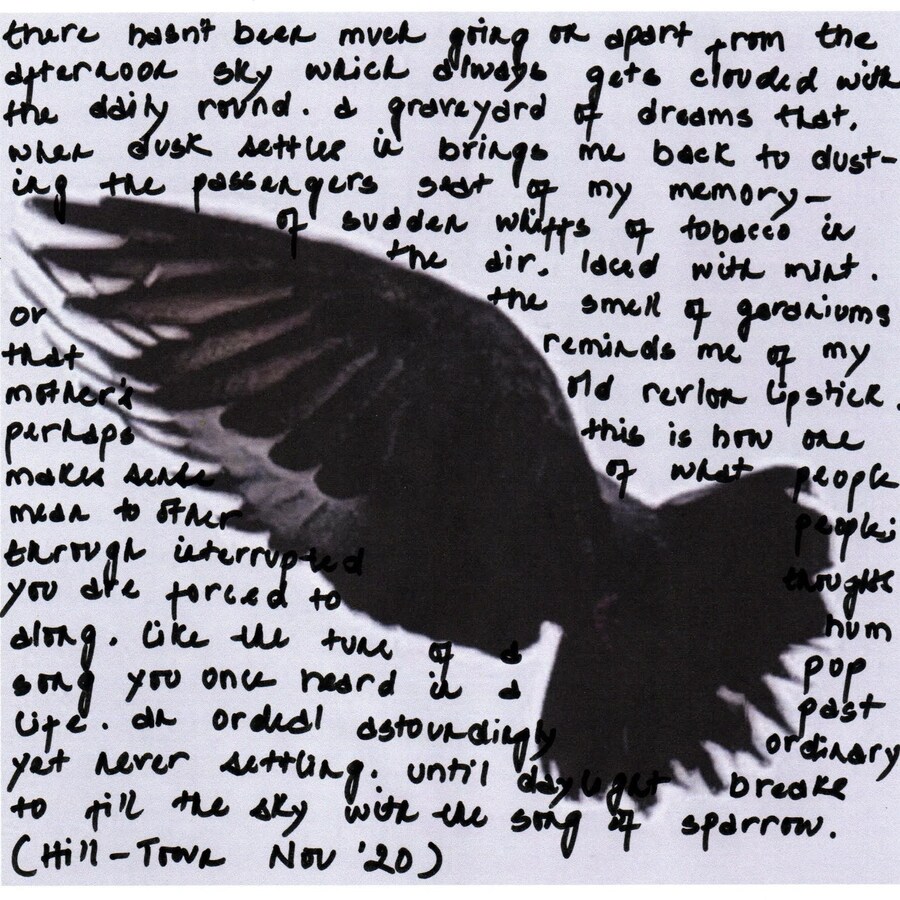 there hasn't been much going on apart from the
afternoon sky which always gets clouded with
the daily round. a graveyard of dreams that,
when dusk settles in brings me back to dust-
ing the passengers seat of my memory-
of sudden whiffs of tobacco in
the air, laced with mint.
or the smell of geraniums
that reminds me of my
mother's old revlon lipstick.
perhaps this is how one
makes sense of what people
mean to other people;
through interrupted thoughts
you are forced to hum
along. like the tune of a pop
song you once heard in a past
life. an ordeal astoundingly ordinary
yet never settling. until daylight breaks
to fill the sky with the song of sparrow.
(Hill-Town Nov '20)